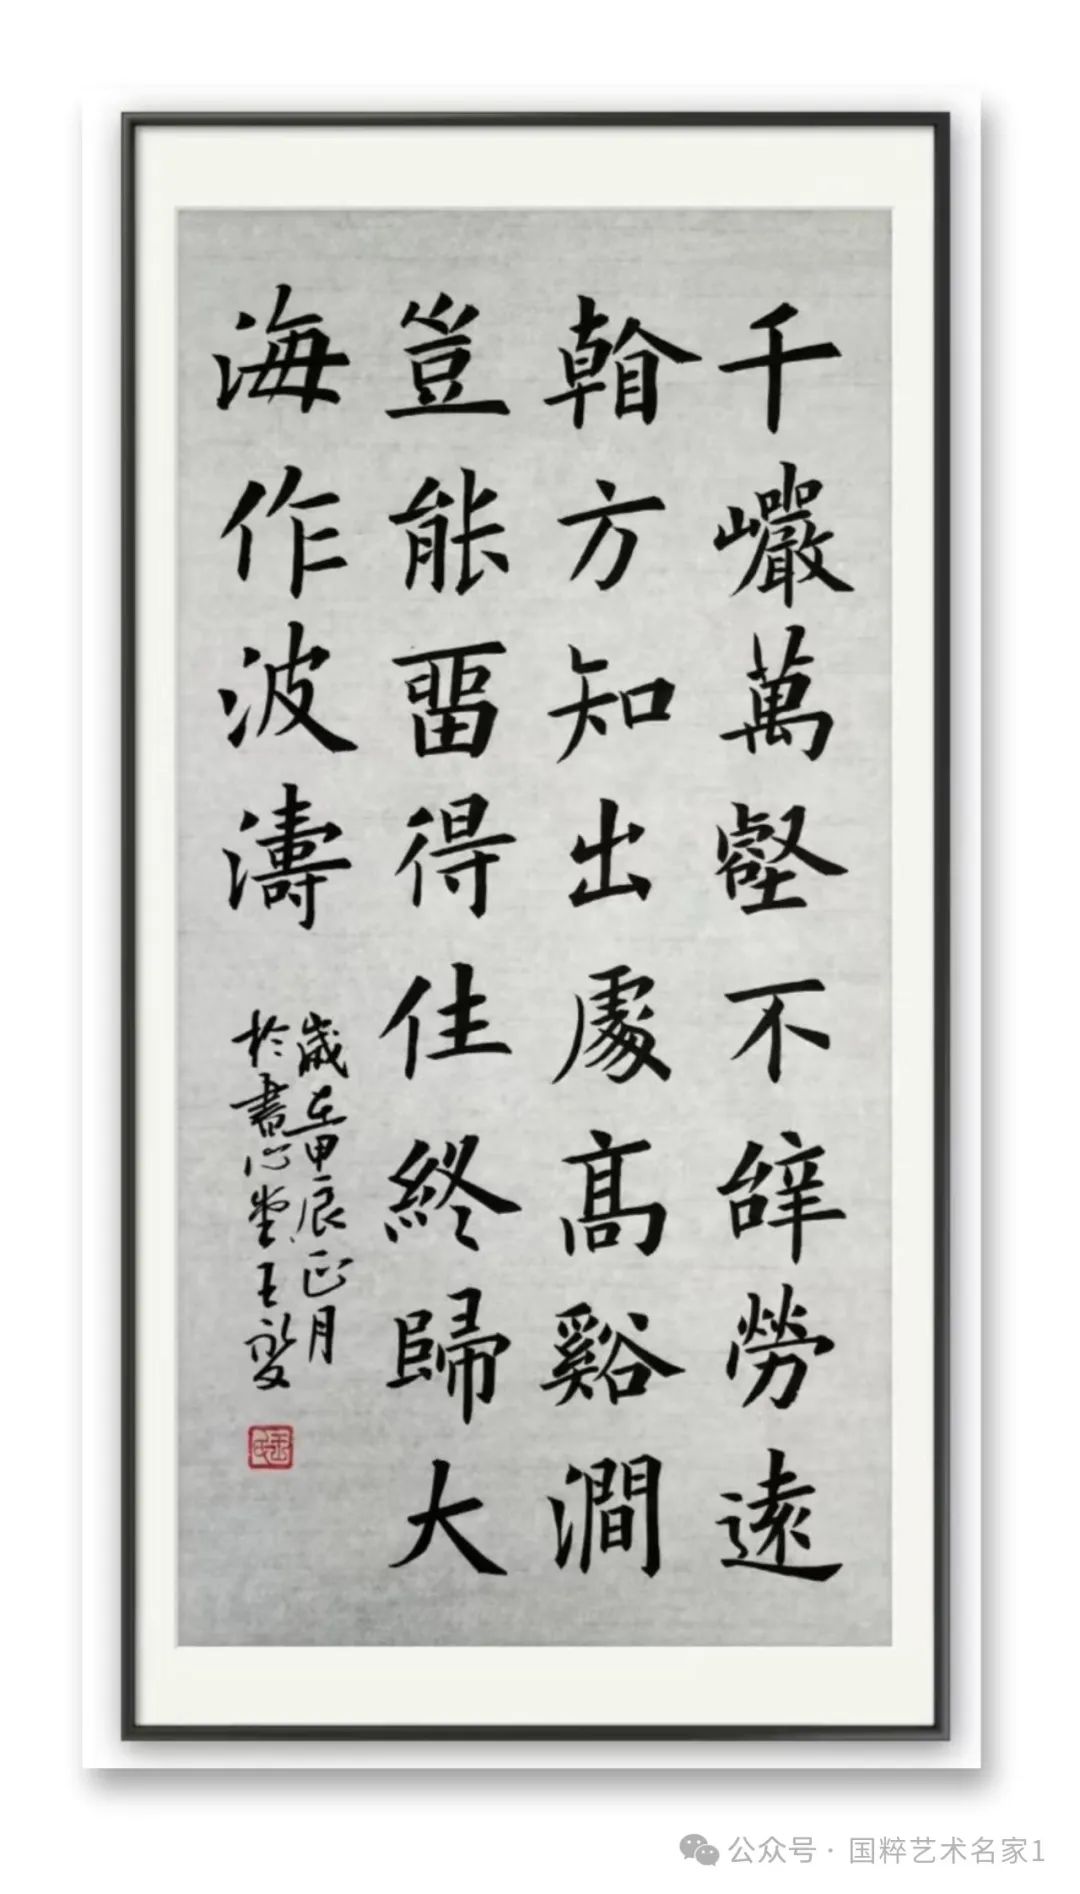 千巗萬壑不辝勞遠
看方知出處高谿澗
豈能畱得住終歸大
海作波濤
歲在甲辰正月
於書心堂王
公众号 · 国粹艺术名家1